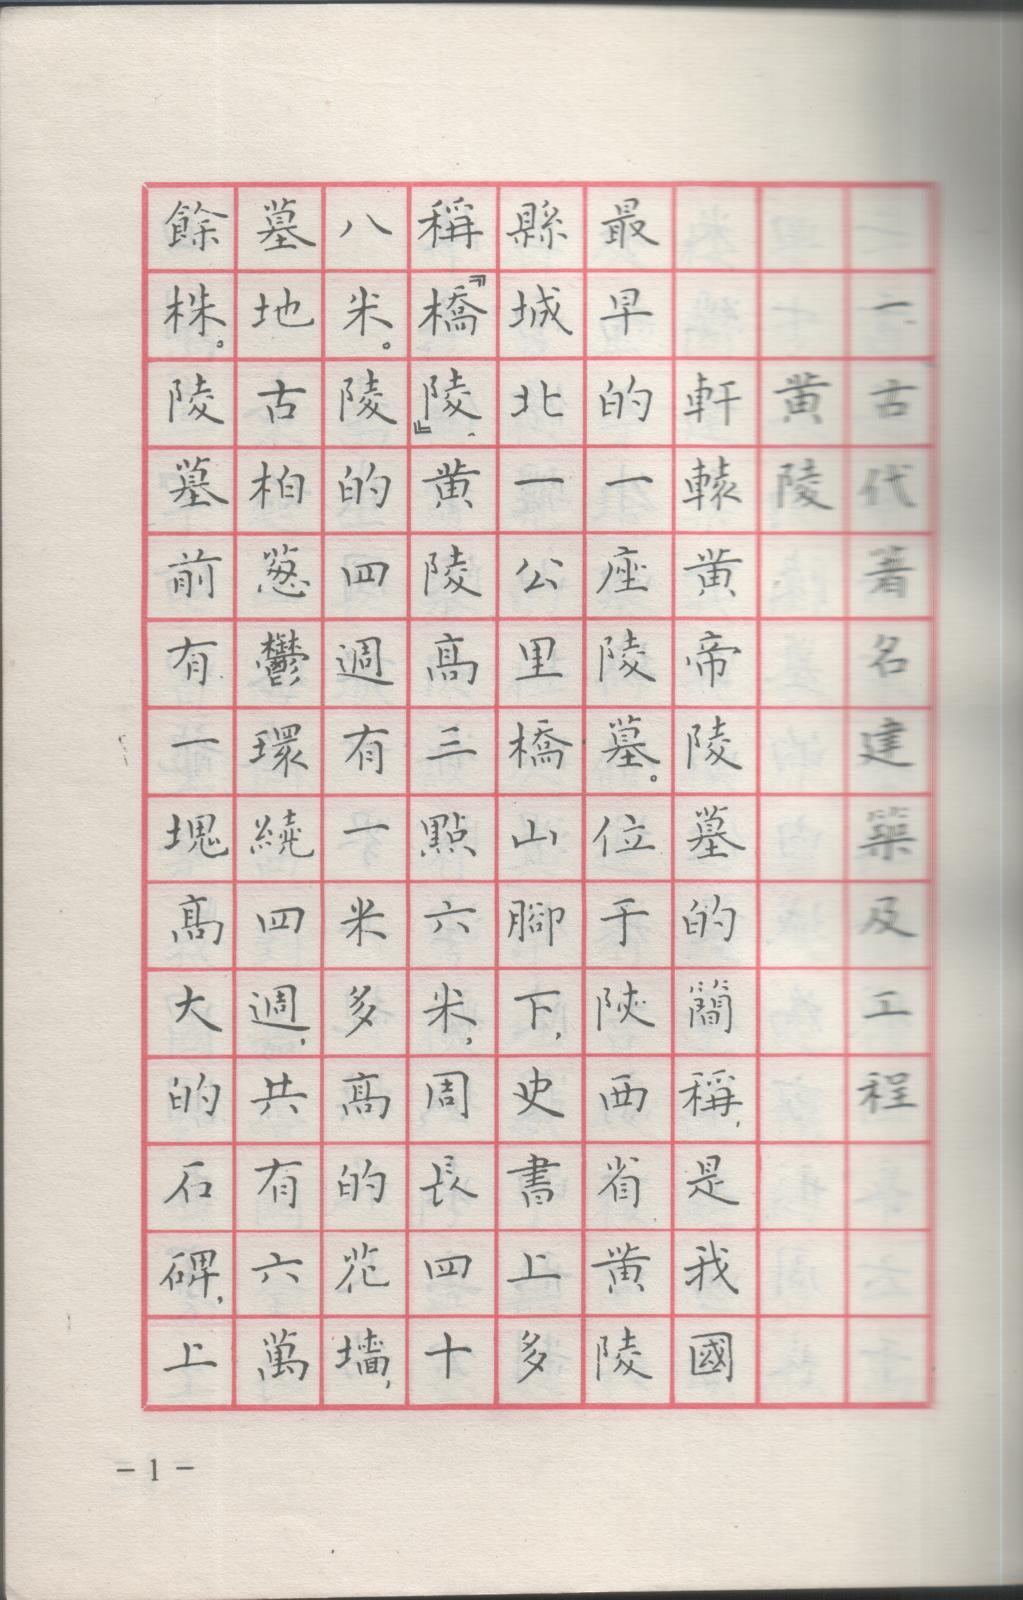 一、古代著名建築及工程
黄陵
軒轅黄帝陵墓的簡稱,是我國
最早的一座陵墓。位于陝西省黄陵
縣城北一公里橋山脚下,史書上多
稱『橋陵』。黄陵高三點六米,周長四十
八米。陵的四週有一米多高的花墻,
墓地古柏葱鬱環繞四週,共有六萬
餘株。陵墓前有一塊高大的石碑,上
- 1 -